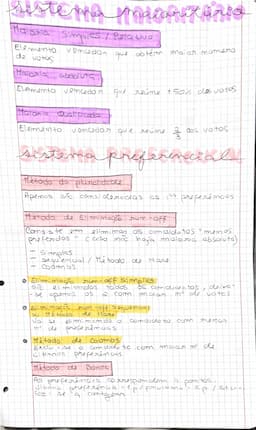 Sistema maioritário
Maioria Simples / Relativa
Elemento vencedor que obtém maior número
de votos
Maioria absoluta
Elemento vencedor que reúne +50% dos votos
Maioria Qualificada
Elemento vencedor que reúne 2/3 dos votos
Sistema preferencial
Método da pluralidade
Apenas são consideradas as 1ªs preferências
Método de Eliminação run-off
Consiste em eliminar os candidatos "menos
preferidos" (caso não haja maioria absoluta)
- Simples
- sequencial / Método de Hare
- Coombs
Eliminação run-off Simples
são eliminados todos os candidatos,
-se apenas os 2 com maior nº de votos
Eliminação run-off sequencial
ou Método de Hare
Vai se eliminando o candidato com menos
nº de preferências
Método de Coombs
Exclui-se o candidato com maior nº de
últimas preferências
Método de Borda
As preferências correspondem a pontos.